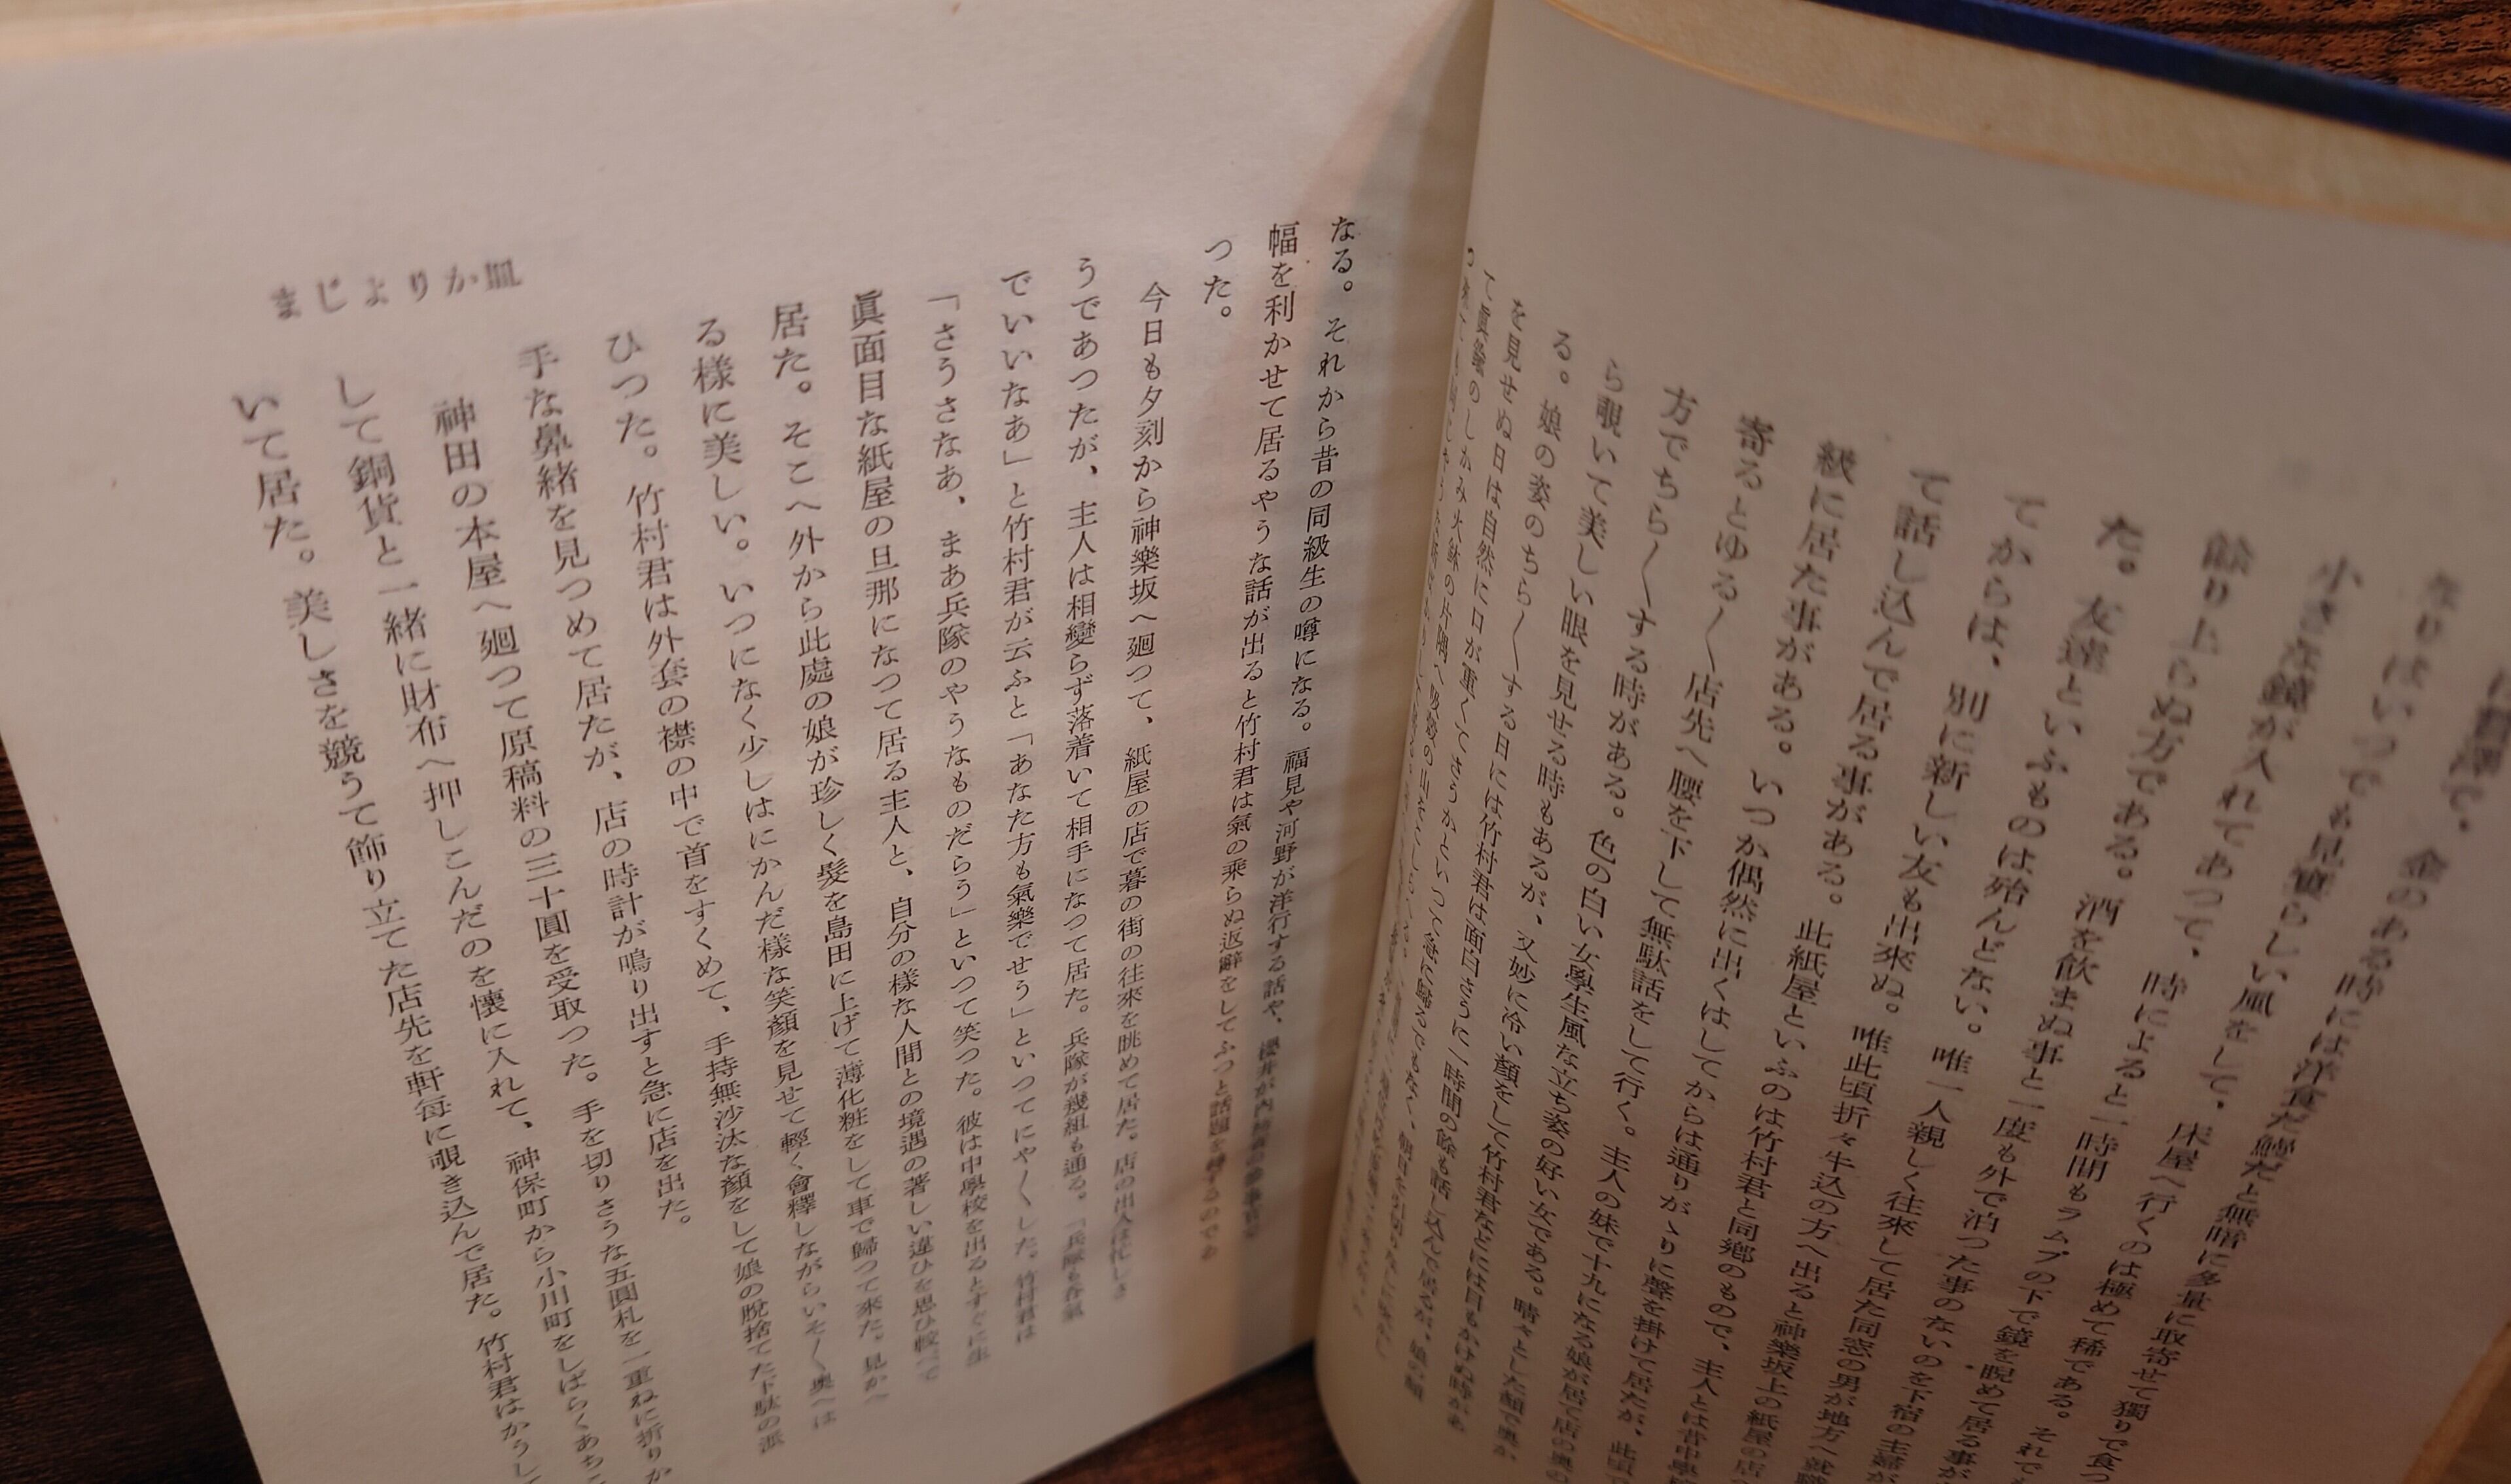 は贅澤で、金のある時には洋食だ鰻だと無暗に多量に取寄せて獨りで食つ
なりはいつでも見窄らしい風をして、床屋へ行くのは極めて稀である。それで
小さな鏡が入れてあつて、時によると一時間もラムプの下で鏡を睨めて居る事が
餘り上らぬ方である。酒を飲まぬ事と一度も外で泊つた事のないのを下宿の主婦が
た。友達といふものは殆んどない。唯一人親しく往來して居た同窓の男が地方へ就職
てからは、別に新しい友も出來ぬ。唯此頃折々牛込の方へ出ると神樂坂上の紙屋の店
て話し込んで居る事がある。此紙屋といふのは竹村君と同郷のもので、主人とは昔中學校
級に居た事がある。いつか偶然に出くはしてからは通りがゝりに聲を掛けて居たが、此頃
寄るとゆる〱店先へ腰を下して無駄話をして行く。主人の妹で十九になる娘が居て店の奥の
方でちら〱する時がある。色の白い女學生風な立ち姿の好い女である。晴々とした顏で奥か
ら覗いて美しい眼を見せる時もあるが、又妙に冷い顏をして竹村君などには目もかけぬ時があ
る。娘の姿のちら〱する日には竹村君は面白さうに一時間の餘も話し込んで居るが、娘の顏
を見せぬ日は自然に口が重くてさうかといつて急に歸るでもなく、朝日を
て眞鍮のしかみ火鉢の片隅へ吸殻の山を
なる。それから昔の同級生の噂になる。福見や河野が洋行する話や、櫻井が内務省の參事官で
幅を利かせて居るやうな話が出ると竹村君は氣の乘らぬ返辭をしてふつと話題を轉ずるのであ
つた。
今日も夕刻から神樂坂へ廻つて、紙屋の店で暮の街の往來を眺めて居た。店の出入は忙しさ
うであつたが、主人は相變らず落着いて相手になつて居た。兵隊が幾組も通る。「兵隊も呑氣
でいいなあ」と竹村君が云ふと「あなた方も氣樂でせう」といつてにや〱した。竹村君は
「さうさなあ、まあ兵隊のやうなものだらう」といつて笑つた。彼は中學校を出るとすぐに生
眞面目な紙屋の旦那になつて居る主人と、自分の樣な人間との境遇の著しい違ひを思ひ較べて
居た。そこへ外から此處の娘が珍しく髮を島田に上げて薄化粧をして車で歸つて來た。見かへ
る樣に美しい。いつになく少しはにかんだ樣な笑顏を見せて輕く會釋しながらいそ〱奥へは
ひつた。竹村君は外套の襟の中で首をすくめて、手持無沙汰な顏をして娘の脫捨てた下駄の派
手な鼻緒を見つめて居たが、店の時計が鳴り出すと急に店を出た。
神田の本屋へ廻つて原稿料の三十圓を受取つた。手を切りさうな五圓札を一重ねに折りか
して銅貨と一緒に財布へ押しこんだのを懷に入れて、神保町から小川町をしばらくあち
いて居た。美しさを競うて飾り立てた店先を軒每に覗き込んで居た。竹村君はかうし
まじよりか皿